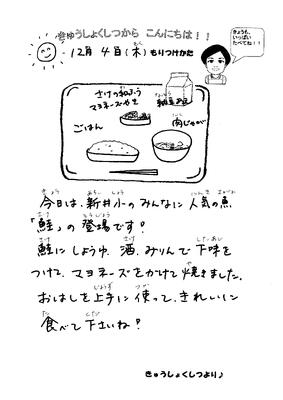 きゅうしょくしつから こんにちは!!
12月 4日(木) もりつけかた
きょうも、
いっぱい
たべてね!!
さけのねぎ
マヨネーズやき
ごはん
肉じゃが
今日は、新井小のみんなに人気の魚
「鮭」の登場です!
鮭にしょうゆ、酒、みりんで下味を
つけて、マヨネーズをかけて焼きました。
おはしを上手に使って、きれいに
食べて下さいね?
きゅうしょくしつより♪